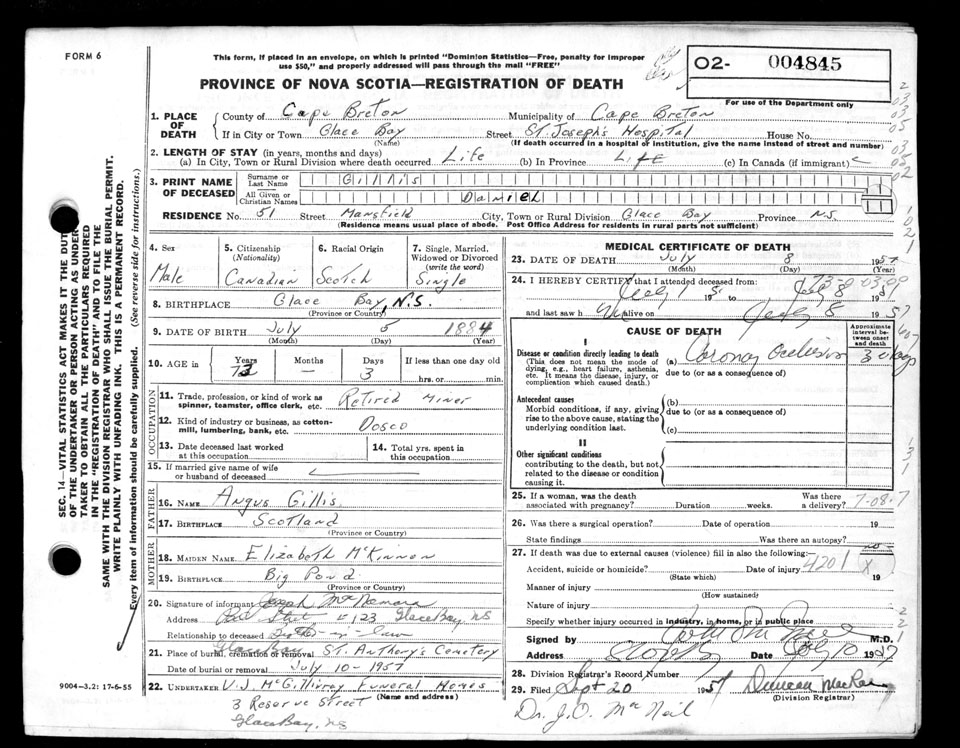 FORM 6
This form, if placed in an envelope, on which is printed "Dominion Statistics—Free, penalty for improper
use $50," and properly addressed will pass through the mail "FREE"
PROVINCE OF NOVA SCOTIA—REGISTRATION OF DEATH
O2- 004845
For use of the Department only
1. PLACE OF DEATH
County of Cape Breton Municipality of Cape Breton
If in City or Town Glace Bay Street St. Joseph's Hospital House No.
(Name) (If death occurred in a hospital or institution, give the name instead of street and number)
2. LENGTH OF STAY (in years, months and days)
(a) In City, Town or Rural Division where death occurred Life (b) In Province Life (c) In Canada (if immigrant)
3. PRINT NAME OF DECEASED
Surname or Last Name Gillis
All Given or Christian Names Daniel
RESIDENCE No. 51 Street Mansfield City, Town or Rural Division Glace Bay Province N.S.
(Residence means usual place of abode. Post Office Address for residents in rural parts not sufficient)
4. Sex
Male
5. Citizenship
(Nationality)
Canadian
6. Racial Origin
Scotch
7. Single, Married, Widowed or Divorced
(write the word)
Single
8. BIRTHPLACE Glace Bay, N.S.
(Province or Country)
9. DATE OF BIRTH July 5 1884
(Month) (Day) (Year)
10. AGE in
Years Months Days If less than one day old
73 — 3 hrs. or min.
OCCUPATION
11. Trade, profession, or kind of work as
spinner, teamster, office clerk, etc. Retired Miner
12. Kind of industry or business, as cotton-
mill, lumbering, bank, etc. Dosco
13. Date deceased last worked
at this occupation
14. Total yrs. spent in
this occupation
15. If married give name of wife
or husband of deceased
FATHER
16. NAME Angus Gillis
17. BIRTHPLACE Scotland
(Province or Country)
MOTHER
18. MAIDEN NAME Elizabeth McKinnon
19. BIRTHPLACE Big Pond
(Province or Country)
20. Signature of informant Joseph McNamara
Address 123 Glace Bay NS
Relationship to deceased Brother-in-law
21. Place of burial, cremation or removal Glace Bay St. Anthony's Cemetery
Date of burial or removal July 10-1957
22. UNDERTAKER V.J McGillivray Funeral Homes
(Name and Address)
3 Reserve Street
Glace Bay, NS
9004-3.2: 17-6-55
MEDICAL CERTIFICATE OF DEATH
23. DATE OF DEATH July 8 1957
(Month) (Day) (Year)
24. I HEREBY CERTIFY that I attended deceased from:
July 1 19 57 to July 8 19 57
and last saw h alive on July 8 1957
CAUSE OF DEATH
Approximate interval between onset and death
I
Disease or condition directly leading to death
(This does not mean the mode of dying, e.g., heart failure, asthenia, etc. It means the disease, injury, or complication which caused death.)
(a) Coronary Occlusion
due to (or as a consequence of)
Antecedent causes
Morbid conditions, if any, giving rise to the above cause, stating the underlying condition last.
(b)
due to (or as a consequence of)
(c)
II
Other significant conditions
contributing to the death, but not related to the disease or condition causing it.
25. If a woman, was the death
associated with pregnancy? Duration weeks. Was there a delivery?
7-08-7
26. Was there a surgical operation? Date of operation 19
State findings Was there an autopsy? no
27. If death was due to external causes (violence) fill in also the following:
Accident, suicide or homicide? Date of injury 19
(State which)
4201
X
Manner of injury
(How sustained)
Nature of injury
Specify whether injury occurred in industry, in home, or in public place
Signed by M.D.
Address Date July 10 1957
28. Division Registrar's Record Number
29. Filed Sept 20 1957 Duncan MacRae
(Division Registrar)
Dr. J.O. MacNeil
SEC. 14—VITAL STATISTICS ACT MAKES IT THE DUTY
OF THE UNDERTAKER OR PERSON ACTING AS UNDER-
TAKER TO OBTAIN ALL THE PARTICULARS REQUIRED
IN THE "REGISTRATION OF DEATH" AND TO FILE THE
SAME WITH THE DIVISION REGISTRAR WHO SHALL ISSUE THE BURIAL PERMIT.
WRITE PLAINLY WITH UNFADING INK. THIS IS A PERMANENT RECORD.
Every item of information should be carefully supplied. (See reverse side for instructions.)